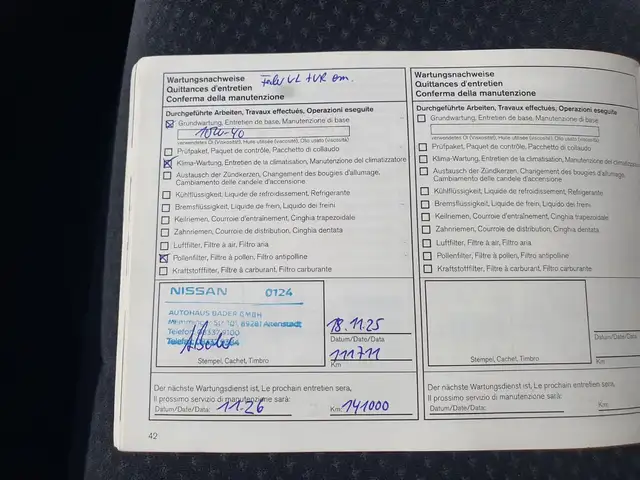 Wartungsnachweise
Quittances d'entretien
Conferma della manutenzione
Durchgeführte Arbeiten, Travaux effectués, Operazioni eseguite
Grundwartung, Entretien de base, Manutenzione di base
10W-40
verwendetes Öl (Viscosität), Huile utilisée (viscosité), Olio usato (viscosità)
Prüfpaket, Paquet de contrôle, Pacchetto di collaudo
Klima-Wartung, Entretien de la climatisation, Manutenzione del climatizzatore
Austausch der Zündkerzen, Changement des bougies d'allumage,
Cambiamento delle candele d'accensione
Kühlflüssigkeit, Liquide de refroidissement, Refrigerante
Bremsflüssigkeit, Liquide de frein, Liquido dei freini
Keilriemen, Courroie d'entraînement, Cinghia trapezoidale
Zahnriemen, Courroie de distribution, Cinghia dentata
Luftfilter, Filtre à air, Filtro aria
Pollenfilter, Filtre à pollen, Filtro antipolline
Kraftstofffilter, Filtre à carburant, Filtro carburante
NISSAN 0124
AUTOHAUS BADER GMBH
89281 Altenstadt
Stempel, Cachet, Timbro
18.11.25
Datum/Date/Data
111711
Km
Der nächste Wartungsdienst ist, Le prochain entretien sera,
Il prossimo servizio di manutenzione sarà:
Datum/Date/Data: 11.26 Km: 141000
42
Wartungsnachweise
Quittances d'entretien
Conferma della manutenzione
Durchgeführte Arbeiten, Travaux effectués, Operazioni eseguite
Grundwartung, Entretien de base, Manutenzione di base
verwendetes Öl (Viscosität), Huile utilisée (viscosité), Olio usato (viscosità)
Prüfpaket, Paquet de contrôle, Pacchetto di collaudo
Klima-Wartung, Entretien de la climatisation, Manutenzione del
Austausch der Zündkerzen, Changement des bougies d'allumage,
Cambiamento delle candele d'accensione
Kühlflüssigkeit, Liquide de refroidissement, Refrigerante
Bremsflüssigkeit, Liquide de frein, Liquido dei freini
Keilriemen, Courroie d'entraînement, Cinghia trapezoidale
Zahnriemen, Courroie de distribution, Cinghia dentata
Luftfilter, Filtre à air, Filtro aria
Pollenfilter, Filtre à pollen, Filtro antipolline
Kraftstofffilter, Filtre à carburant, Filtro carburante
Stempel, Cachet, Timbro
Datum/Date/Data
Km
Der nächste Wartungsdienst ist, Le prochain entretien sera,
Il prossimo servizio di manutenzione sarà:
Datum/Date/Data: Km: